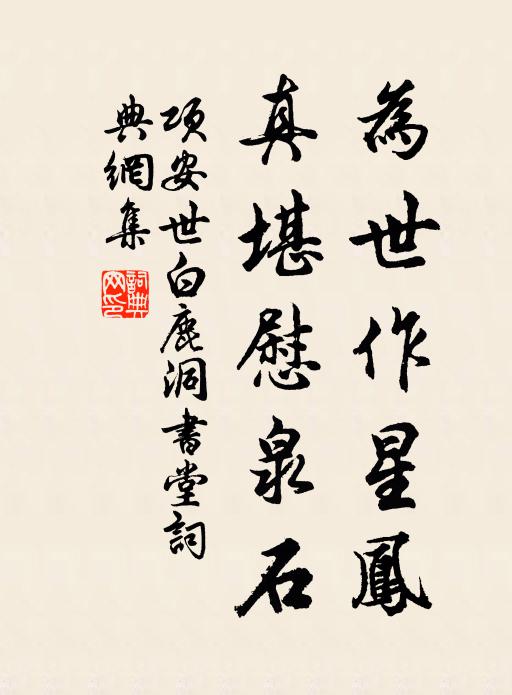 為世作星鳳
真堪慰泉石
項安世白鹿洞書堂詞
典網集
詞典網印